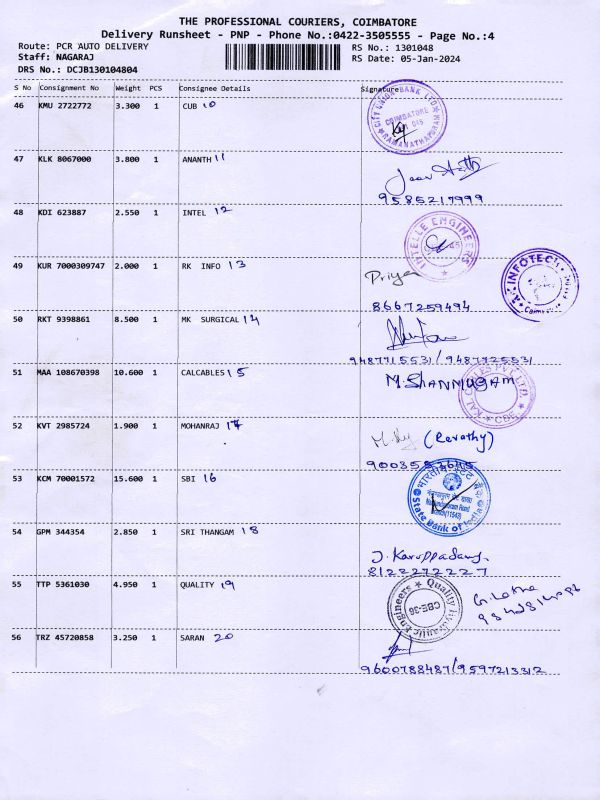 THE PROFESSIONAL COURIERS, COIMBATORE
Delivery Runsheet - PNP - Phone No.:0422-3505555 - Page No.:4
Route: PCR AUTO DELIVERY
RS No.: 1301048
Staff: NAGARAJ
RS Date: 05-Jan-2024
DRS No.: DCJB130104804
S No Consignment No Weight PCS Consignee Details Signature
46 KMU 2722772 3.300 1 CUB 10
CITY UNION BANK LTD
COIMBATORE
045
RAMANATHAPURAM
47 KLK 8067000 3.800 1 ANANTH 11
9585217999
48 KDI 623887 2.550 1 INTEL 12
INTELLE ENGINEERS
49 KUR 7000309747 2.000 1 RK INFO 13
Priya
8667259494
INFOTECH
50 RKT 9398861 8.500 1 MK SURGICAL 14
9487715531/9487725531
51 MAA 108670398 10.600 1 CALCABLES 15
M. SHANMUGAM
KAL CABLES PVT. LTD.
CBE
52 KVT 2985724 1.900 1 MOHANRAJ 17
(Revathy)
53 KCM 70001572 15.600 1 SBI 16
भारतीय स्टेट बैंक
State Bank of India
54 GPM 344354 2.850 1 SRI THANGAM 18
8122272227
55 TTP 5361030 4.950 1 QUALITY 19
Quality Hydraulic Engineers
CBE-36
G. Latha
56 TRZ 45720858 3.250 1 SARAN 20
9600788487/9597213312